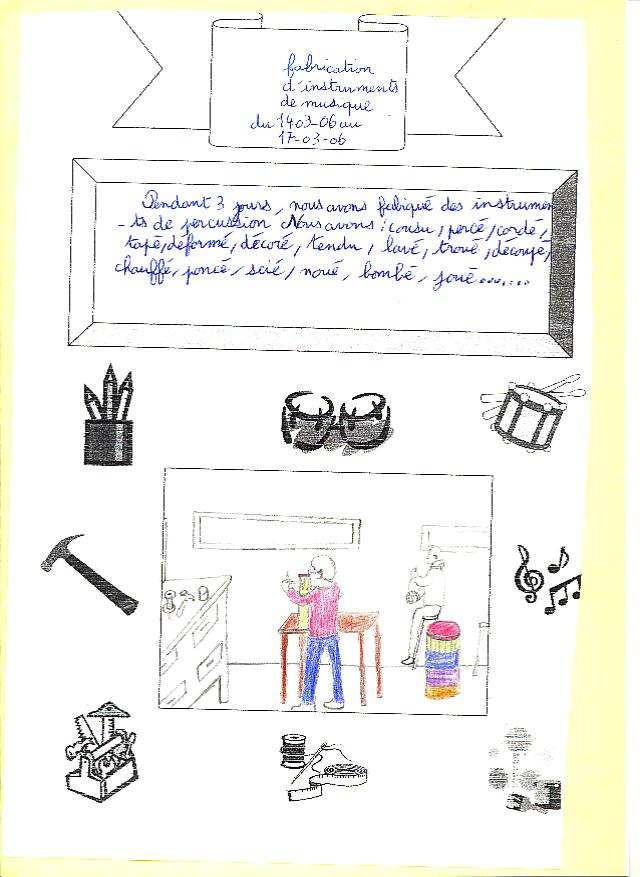 fabrication
d'instruments
de musique
du 14-03-06 au
17-03-06
Pendant 3 jours, nous avons fabriqué des instrumen
-ts de percussion Nous avons : cousu, percé, cordé,
tapé, déformé, décoré, tendu, lavé, troué, découpé,
chauffé, poncé, scié, noué, bombé, joué.......